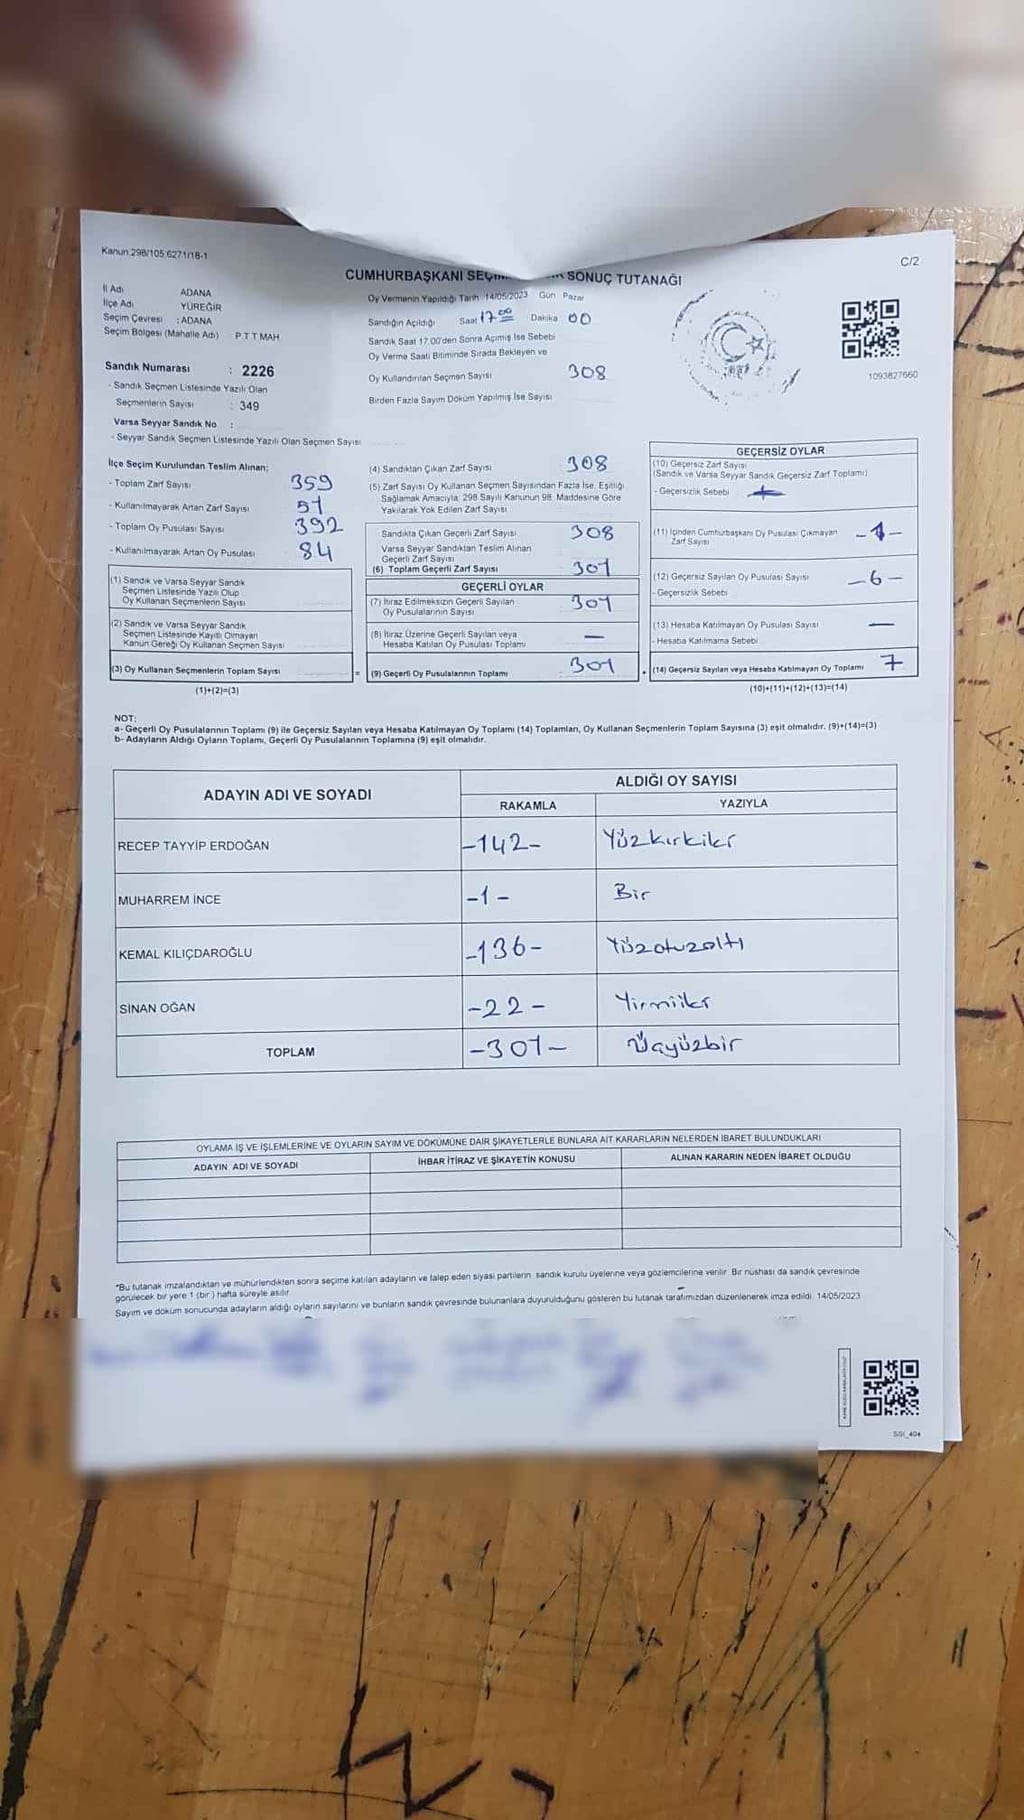 Kanun:298/105;6271/18-1
C/2
CUMHURBAŞKANI SONUÇ TUTANAĞI
İl Adı ADANA
İlçe Adı YÜREĞİR
Seçim Çevresi : ADANA
Seçim Bölgesi (Mahalle Adı) P T T MAH
Sandık Numarası : 2226
- Sandık Seçmen Listesinde Yazılı Olan
Seçmenlerin Sayısı : 349
Varsa Seyyar Sandık No :
- Seyyar Sandık Seçmen Listesinde Yazılı Olan Seçmen Sayısı
Oy Vermenin Yapıldığı Tarih 14/05/2023 Gün Pazar
Sandığın Açıldığı Saat 17 00 Dakika 00
Sandık Saat 17.00'den Sonra Açımış İse Sebebi
Oy Verme Saati Bitiminde Sırada Bekleyen ve
Oy Kullandırılan Seçmen Sayısı 308
Birden Fazla Sayım Döküm Yapılmış İse Sayısı
1093827660
İlçe Seçim Kurulundan Teslim Alınan;
- Toplam Zarf Sayısı 359
- Kullanılmayarak Artan Zarf Sayısı 51
- Toplam Oy Pusulası Sayısı 392
- Kullanılmayarak Artan Oy Pusulası 84
(1) Sandık ve Varsa Seyyar Sandık
Seçmen Listesinde Yazılı Olup
Oy Kullanan Seçmenlerin Sayısı
(2) Sandık ve Varsa Seyyar Sandık
Seçmen Listesinde Kayıtlı Olmayan
Kanun Gereği Oy Kullanan Seçmen Sayısı
(3) Oy Kullanan Seçmenlerin Toplam Sayısı
(1)+(2)=(3)
(4) Sandıktan Çıkan Zarf Sayısı 308
(5) Zarf Sayısı Oy Kullanan Seçmen Sayısından Fazla İse, Eşitliği
Sağlamak Amacıyla; 298 Sayılı Kanunun 98. Maddesine Göre
Yakılarak Yok Edilen Zarf Sayısı
Sandıkta Çıkan Geçerli Zarf Sayısı 308
Varsa Seyyar Sandıktan Teslim Alınan
Geçerli Zarf Sayısı
(6) Toplam Geçerli Zarf Sayısı 301
GEÇERLİ OYLAR
(7) İtiraz Edilmeksizin Geçerli Sayılan
Oy Pusulalarının Sayısı 301
(8) İtiraz Üzerine Geçerli Sayılan veya
Hesaba Katılan Oy Pusulası Toplamı —
= (9) Geçerli Oy Pusulalarının Toplamı 301
GEÇERSİZ OYLAR
(10) Geçersiz Zarf Sayısı
(Sandık ve Varsa Seyyar Sandık Geçersiz Zarf Toplamı)
- Geçersizlik Sebebi
(11) İçinden Cumhurbaşkanı Oy Pusulası Çıkmayan
Zarf Sayısı -1-
(12) Geçersiz Sayılan Oy Pusulası Sayısı -6-
- Geçersizlik Sebebi
(13) Hesaba Katılmayan Oy Pusulası Sayısı —
- Hesaba Katılmama Sebebi
+ (14) Geçersiz Sayılan veya Hesaba Katılmayan Oy Toplamı 7
(10)+(11)+(12)+(13)=(14)
NOT:
a- Geçerli Oy Pusulalarının Toplamı (9) ile Geçersiz Sayılan veya Hesaba Katılmayan Oy Toplamı (14) Toplamları, Oy Kullanan Seçmenlerin Toplam Sayısına (3) eşit olmalıdır. (9)+(14)=(3)
b- Adayların Aldığı Oyların Toplamı, Geçerli Oy Pusulalarının Toplamına (9) eşit olmalıdır.
ADAYIN ADI VE SOYADI ALDIĞI OY SAYISI
RAKAMLA YAZIYLA
RECEP TAYYİP ERDOĞAN -142- Yüzkırkiki
MUHARREM İNCE -1- Bir
KEMAL KILIÇDAROĞLU -136- Yüzotuzaltı
SİNAN OĞAN -22- Yirmiiki
TOPLAM -301- Üçyüzbir
OYLAMA İŞ VE İŞLEMLERİNE VE OYLARIN SAYIM VE DÖKÜMÜNE DAİR ŞİKAYETLERLE BUNLARA AİT KARARLARIN NELERDEN İBARET BULUNDUKLARI
ADAYIN ADI VE SOYADI İHBAR İTİRAZ VE ŞİKAYETİN KONUSU ALINAN KARARIN NEDEN İBARET OLDUĞU
*Bu tutanak imzalandıktan ve mühürlendikten sonra seçime katılan adayların ve talep eden siyasi partilerin sandık kurulu üyelerine veya gözlemcilerine verilir. Bir nüshası da sandık çevresinde
görülecek bir yere 1 (bir ) hafta süreyle asılır.
Sayım ve döküm sonucunda adayların aldığı oyların sayılarını ve bunların sandık çevresinde bulunanlara duyurulduğunu gösteren bu tutanak tarafımızdan düzenlenerek imza edildi. 14/05/2023
SSI_404